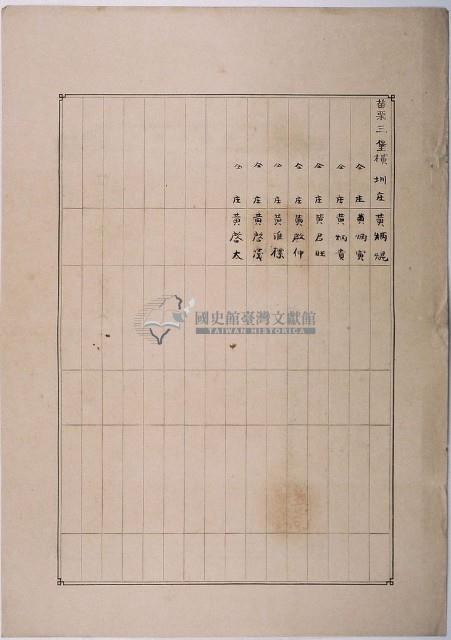 苗栗三堡横圳庄 黄炳焜
仝 庄 黄炳寅
仝 庄 黄炳貴
仝 庄 黄占旺
仝 庄 黄啟仲
仝 庄 黄進標
仝 庄 黄啓茂
仝 庄 黄啓太
國史館臺灣文獻館
TAIWAN HISTORICA